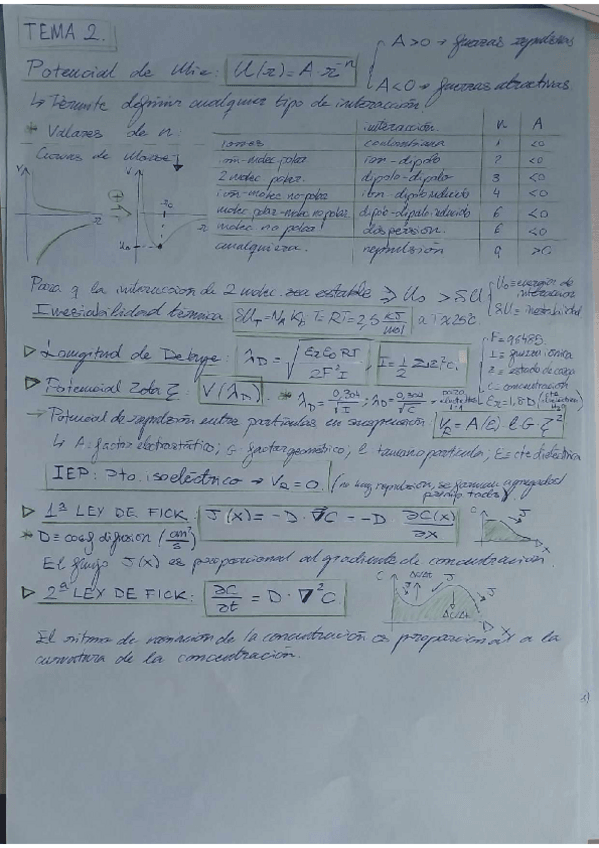 TEMA 2.
Potencial de Mie: U(r) = A·r⁻ⁿ { A>0 → fuerzas repulsivas
A<0 → fuerzas atractivas.
↳ Permite definir cualquier tipo de interacción
* Valores de n:
Curvas de Morse
interacción n A
iones coulombiana 1 <0
ion-molec polar ion-dipolo 2 <0
2 molec polar. dipolo-dipolo 3 <0
ion-molec no polar ion-dipolo inducido 4 <0
molec polar-molec no polar dipolo-dipolo inducido 6 <0
molec no polar dispersión. 6 <0
cualquiera. repulsión 9 >0
Para q la interacción de 2 molec. sea estable ⇒ U₀ > δU { U₀ = energía de interacción
δU = inestabilidad
Inestabilidad térmica δU_T = N_A K_B T = RT = 2,5 KJ/mol a T ≈ 25ºC.
▷ Longitud de Debye: λ_D = √(εrε₀RT / 2F²I), I = 1/2 Σ z²c.
F = 96485
I = fuerza iónica
z = estado de carga
c = concentración
▷ Potencial zeta ζ: V(λ_D) * λ_D = 0,304/√I ; λ_D = 0,304/√C
→ Potencial de repulsión entre partículas en suspensión: V_R = A(ε) l G ζ²
↳ A: factor electrostático; G: factor geométrico; l: tamaño partícula; E = cte dieléctrica
IEP: Pto. isoeléctrico → V_R = 0. (no hay repulsión, se forman agregados
▷ 1ª LEY DE FICK: J(x) = -D·∇C = -D ∂C(x)/∂x
* D = coef difusion (cm²/s)
El flujo J(x) es proporcional al gradiente de concentración.
▷ 2ª LEY DE FICK: ∂C/∂t = D·∇²C
El ritmo de variación de la concentración es proporcional a la
curvatura de la concentración.